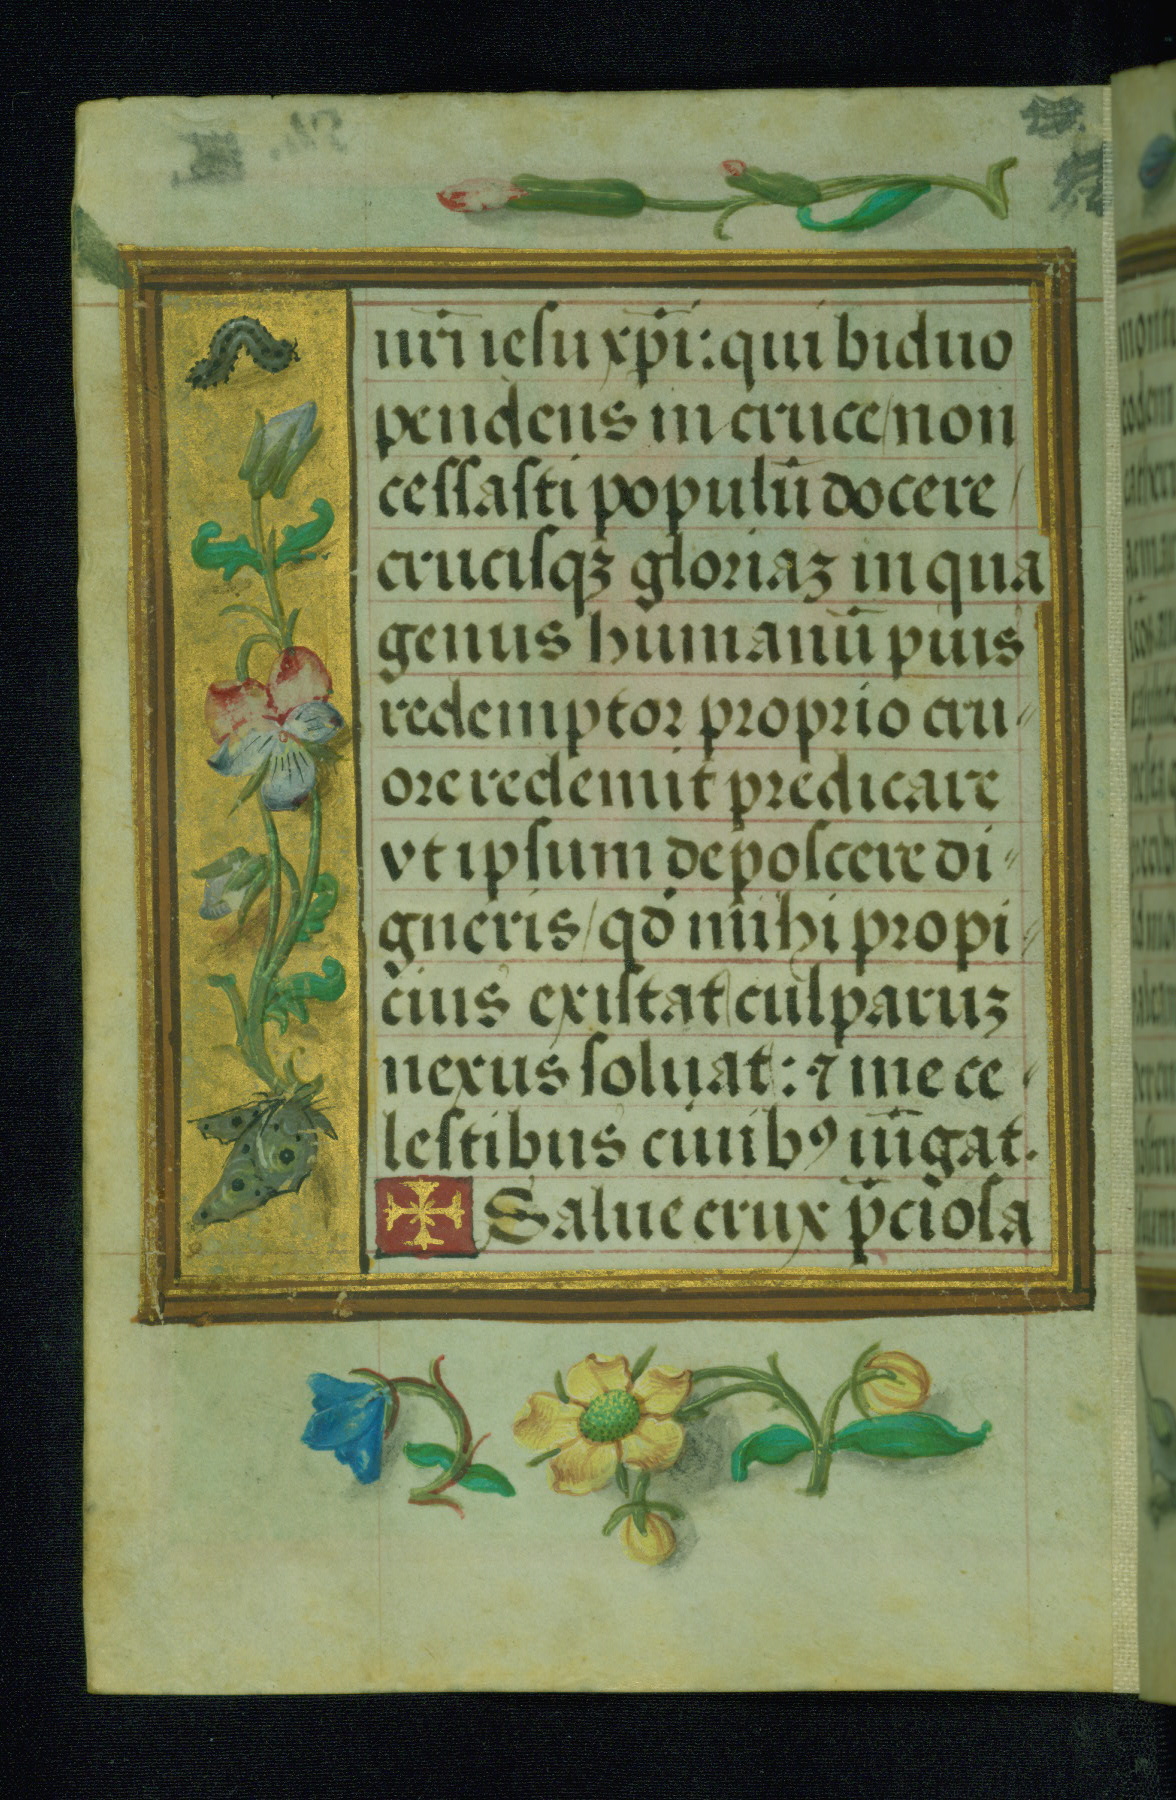 nr̄i iesu xp̄i: qui biduo
pendens in cruce/ non
cessasti populū docere /
crucisqꝫ gloriaꝫ in qua
genus humanū puis
redemptor proprio cru⸗
ore redemit predicare
vt ipsum deposcere di⸗
gneris/ qd̄ mihi propi⸗
cius existat/ culparuꝫ
nexus soluat: ⁊ me ce⸗
lestibus ciuibꝰ iūgat.
Salue crux p̄ciosa